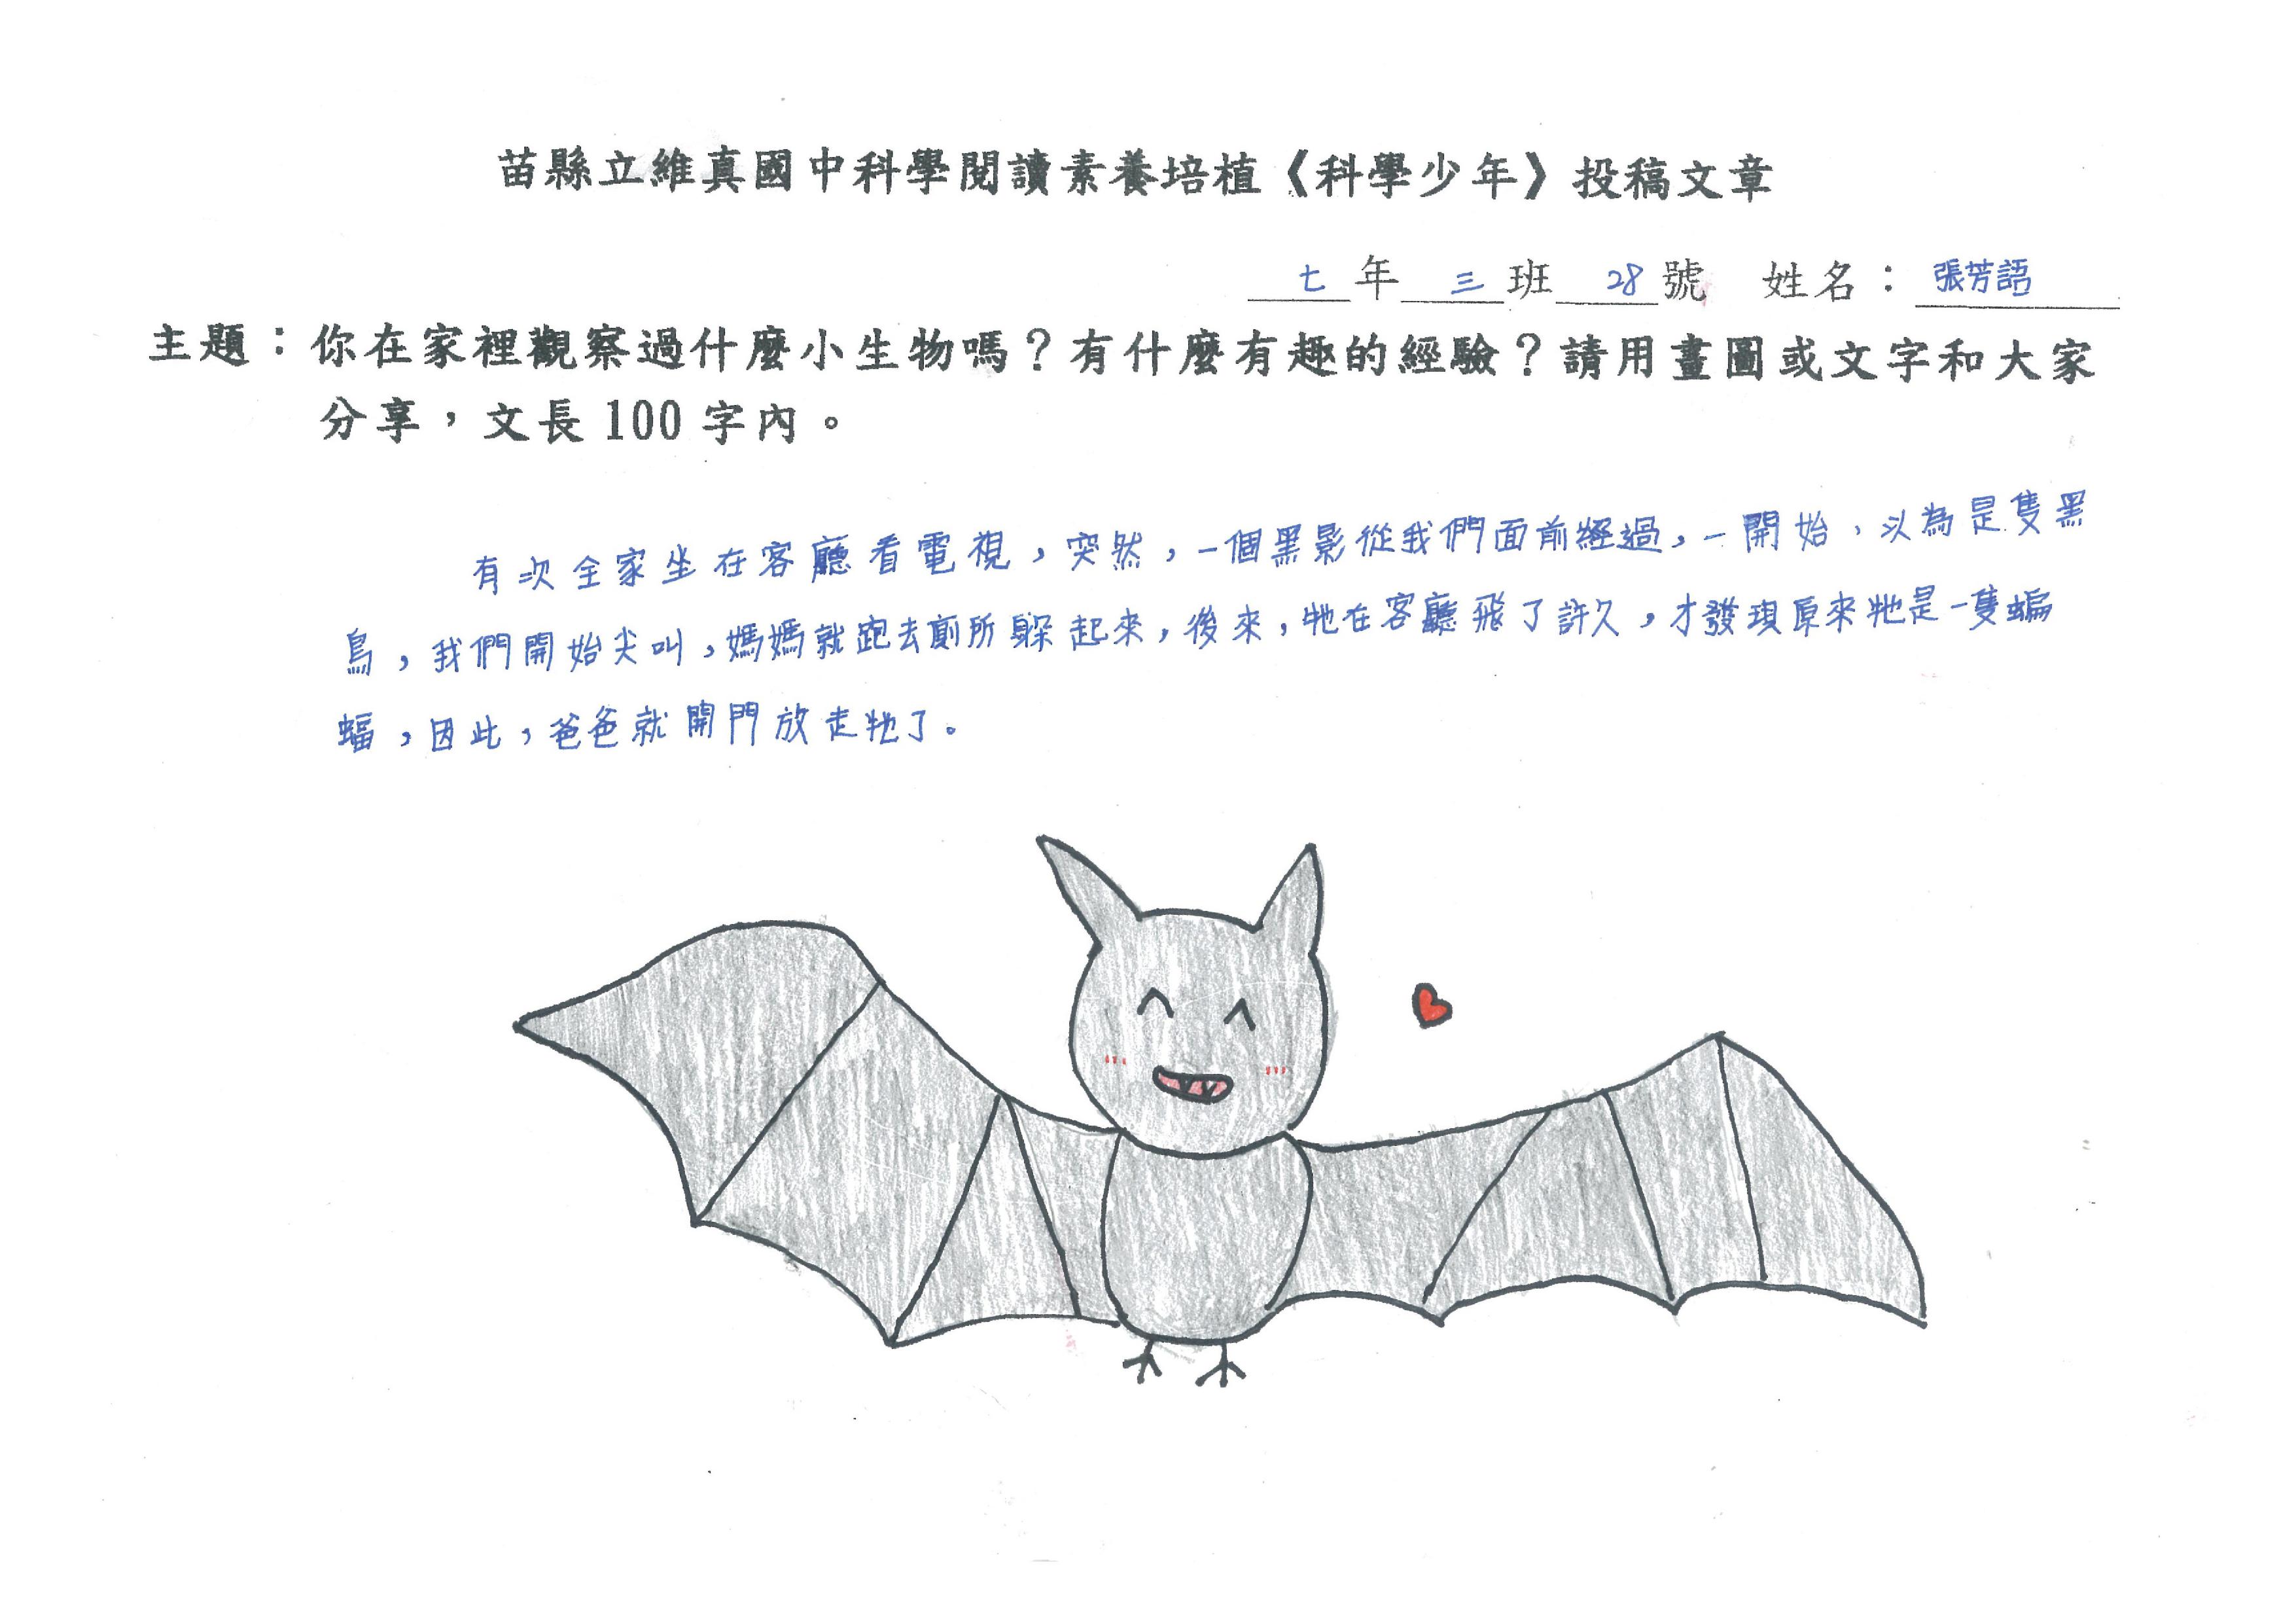 苗縣立維真國中科學閱讀素養培植《科學少年》投稿文章
七年三班28號 姓名：張芳語
主題：你在家裡觀察過什麼小生物嗎？有什麼有趣的經驗？請用畫圖或文字和大家
分享，文長100字內。
有次全家坐在客廳看電視，突然，一個黑影從我們面前經過，一開始，以為是隻黑
鳥，我們開始尖叫，媽媽就跑去廁所躲起來，後來，牠在客廳飛了許久，才發現原來牠是一隻蝙
蝠，因此，爸爸就開門放走牠了。